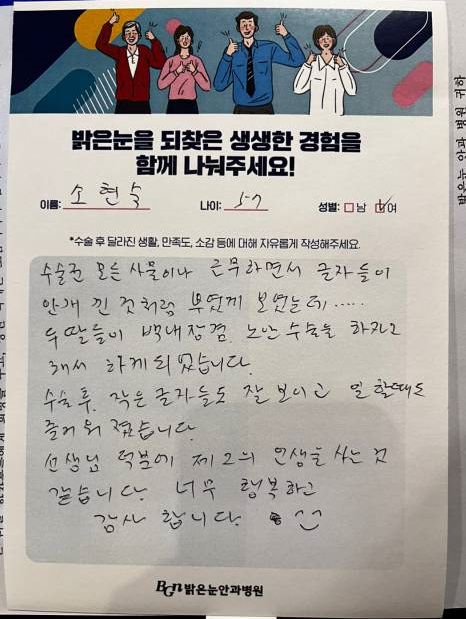 밝은눈을 되찾은 생생한 경험을
함께 나눠주세요!
이름: 소현숙 나이: 57 성별: 남 여
*수술 후 달라진 생활, 만족도, 소감 등에 대해 자유롭게 작성해주세요.
수술전 모든 사물이나 근무하면서 글자들이
안개 낀 것처럼 부옇게 보였는데.....
두 딸들이 백내장겸 노안수술을 하자고
해서 하게 되었습니다.
수술후, 작은 글자들도 잘 보이고 일 할때도
즐거워 졌습니다.
선생님 덕분에 제2의 인생을 사는 것
같습니다. 너무 행복하고
감사 합니다.
BGn 밝은눈안과병원
밝은눈 안과 병원 귀하